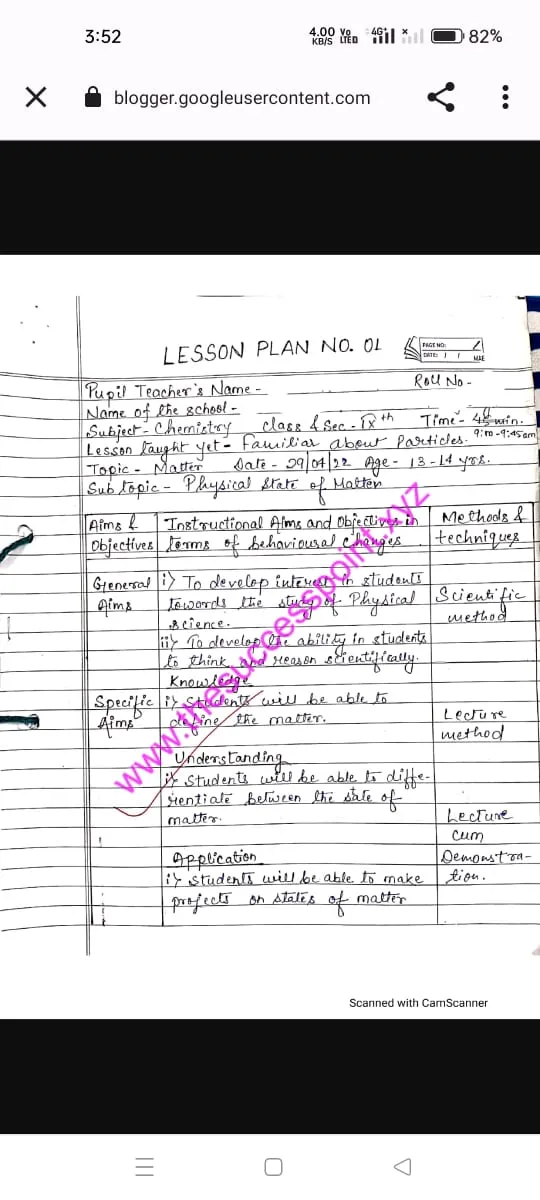 3:52 4.00 KB/S Vo LTED 4G 82%
blogger.googleusercontent.com
LESSON PLAN NO. 01
PAGE NO:
DATE: / /
Roll No -
Pupil Teacher's Name -
Name of the school -
Subject - Chemistry Class & Sec - IXth Time - min.
Lesson taught yet - Familiar about Particles. 9:m-9:45am
Topic - Matter Date - 29/04/22 Age - 13-14 yrs.
Sub topic - Physical State of Matter
Aims & Objectives
Instructional Aims and Objectives in
terms of behavioural changes.
Methods &
techniques
General
Aims
i) To develop interest in students
towords the study of Physical
science.
ii) To develop the ability in students
to think and reason scientifically.
Scientific
method
Specific
Aims
Knowledge
i) Students will be able to
define the matter.
Lecture
method
Understanding
i) Students will be able to diffe-
rentiate between the state of
matter.
Lecture
cum
Demonstra-
tion.
Application
i) Students will be able to make
projects on states of matter
www.thesuccesspoint.xyz
Scanned with CamScanner